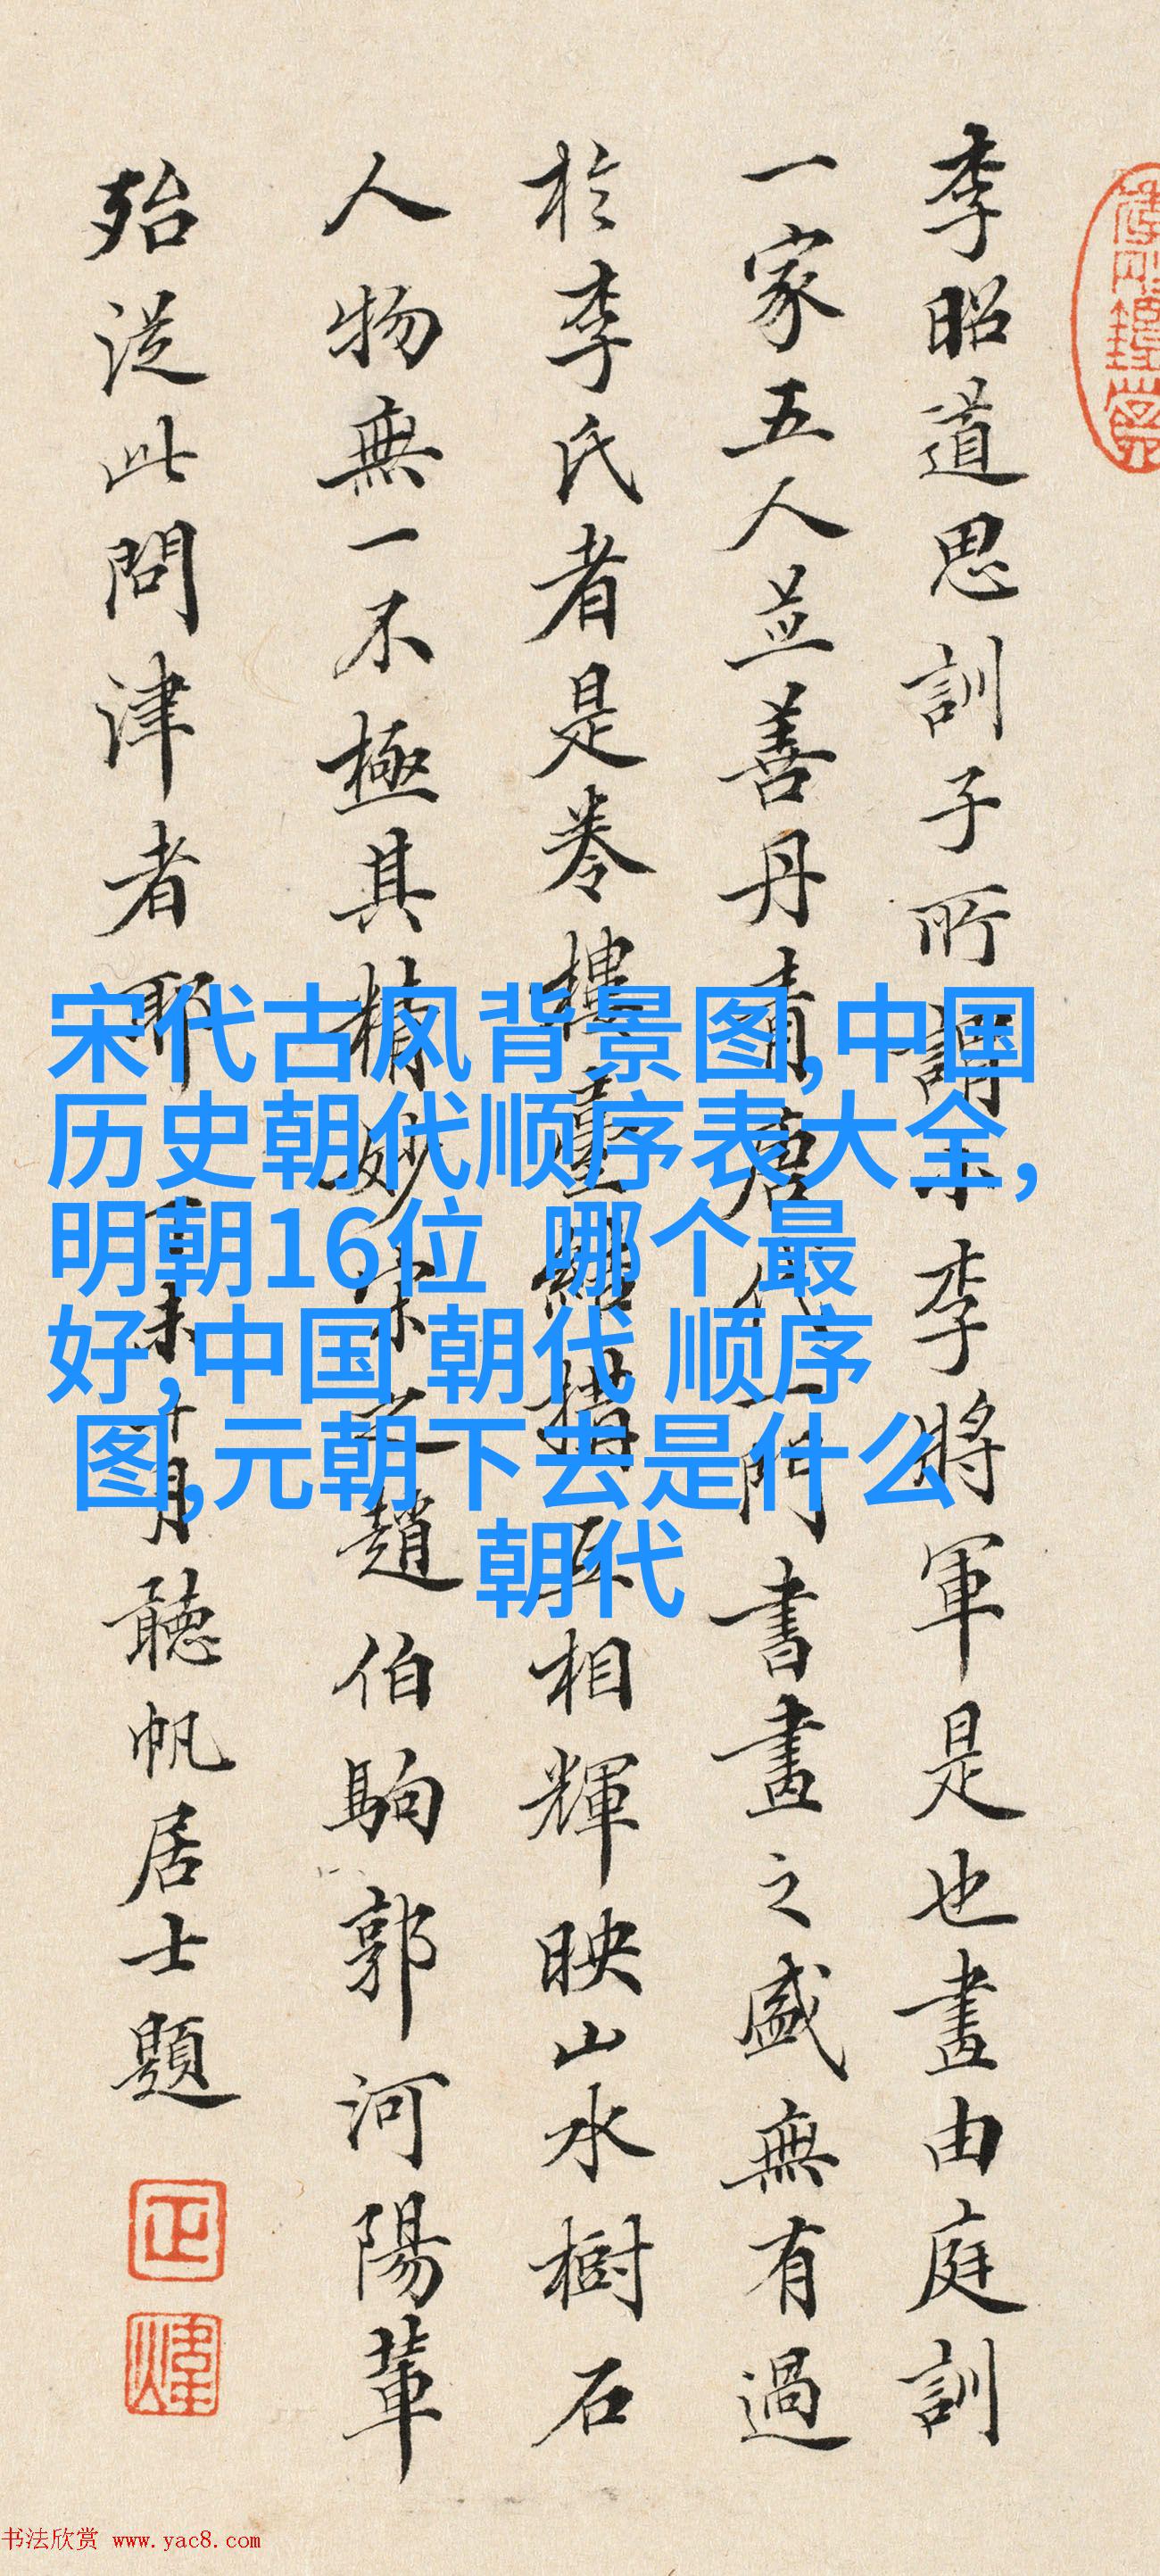 李昭道思訓子所謂小李將軍是也畫由庭訓
一家五人並善丹青唐代一門書畫之盛無有過
於李氏者是卷樓臺相輝映山水樹石
人物無一不極其精妙宋之趙伯駒郭河陽輩
殆從此問津者耶丁未十月聽帆居士題
宋代古风背景图,中国
历史朝代顺序表大全,
明朝16位 哪个最
好,中国 朝代 顺序
图,元朝下去是什么
朝代
书法欣赏 www.yac8.com